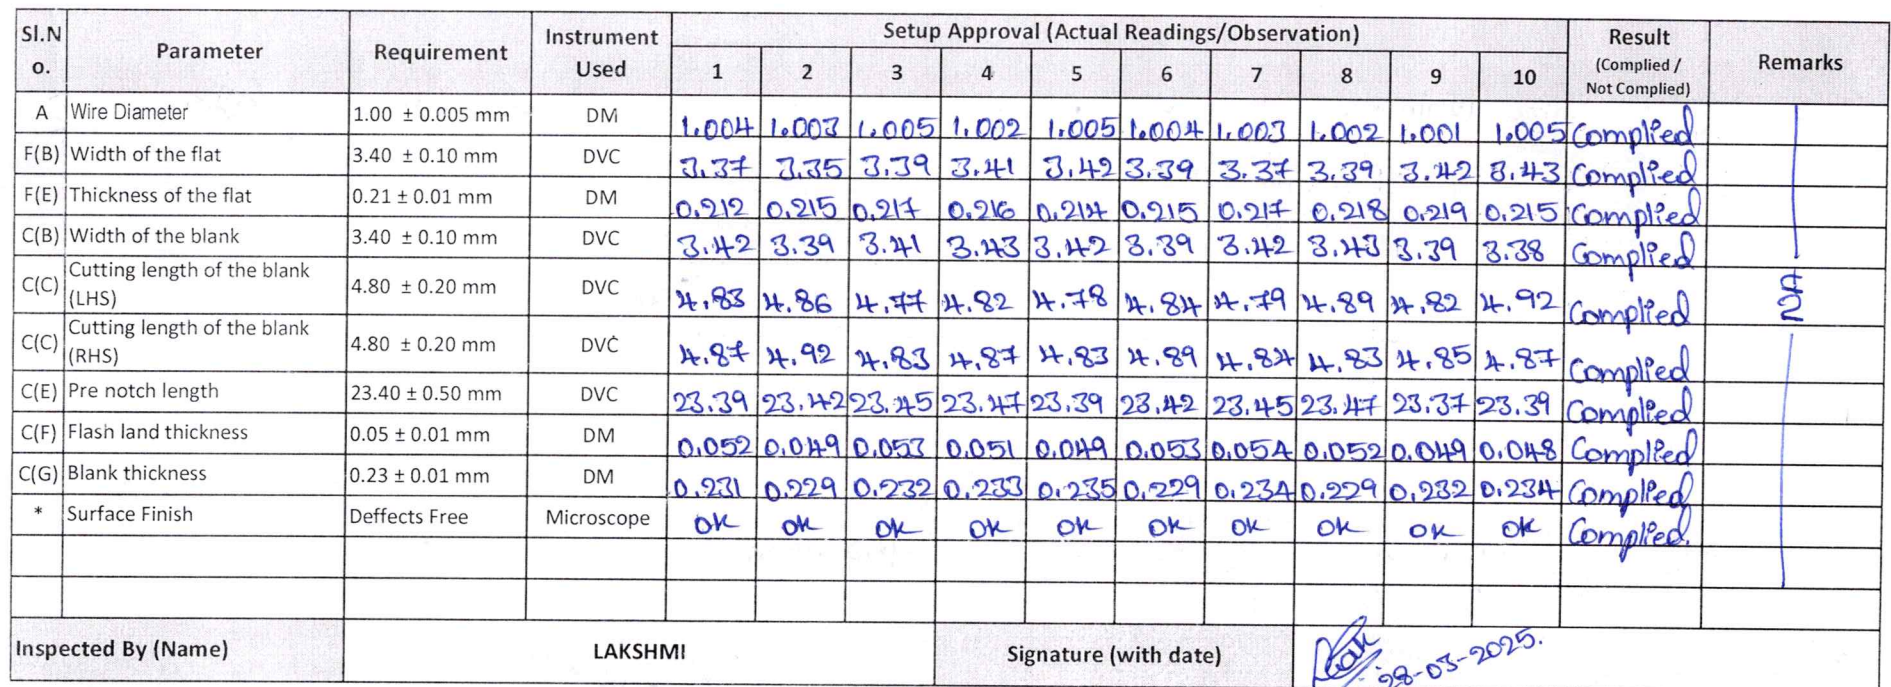 Sl.No. Parameter Requirement Instrument Used Setup Approval (Actual Readings/Observation) Result (Complied / Not Complied) Remarks
1 2 3 4 5 6 7 8 9 10
A Wire Diameter 1.00 ± 0.005 mm DM 1.004 1.003 1.005 1.002 1.005 1.004 1.003 1.002 1.001 1.005 Complied
F(B) Width of the flat 3.40 ± 0.10 mm DVC 3.37 3.35 3.39 3.41 3.42 3.39 3.37 3.39 3.42 3.43 Complied
F(E) Thickness of the flat 0.21 ± 0.01 mm DM 0.212 0.215 0.217 0.216 0.214 0.215 0.217 0.218 0.219 0.215 Complied
C(B) Width of the blank 3.40 ± 0.10 mm DVC 3.42 3.39 3.41 3.43 3.42 3.39 3.42 3.43 3.39 3.38 Complied
C(C) Cutting length of the blank (LHS) 4.80 ± 0.20 mm DVC 4.83 4.86 4.77 4.82 4.78 4.84 4.79 4.89 4.82 4.92 Complied
C(C) Cutting length of the blank (RHS) 4.80 ± 0.20 mm DVC 4.87 4.92 4.83 4.87 4.83 4.89 4.84 4.83 4.85 4.87 Complied
C(E) Pre notch length 23.40 ± 0.50 mm DVC 23.39 23.42 23.45 23.47 23.39 23.42 23.45 23.47 23.37 23.39 Complied
C(F) Flash land thickness 0.05 ± 0.01 mm DM 0.052 0.049 0.053 0.051 0.049 0.053 0.054 0.052 0.049 0.048 Complied
C(G) Blank thickness 0.23 ± 0.01 mm DM 0.231 0.229 0.232 0.233 0.235 0.229 0.234 0.229 0.232 0.234 Complied
* Surface Finish Deffects Free Microscope OK OK OK OK OK OK OK OK OK OK Complied.
Inspected By (Name) LAKSHMI Signature (with date) 28-03-2025.